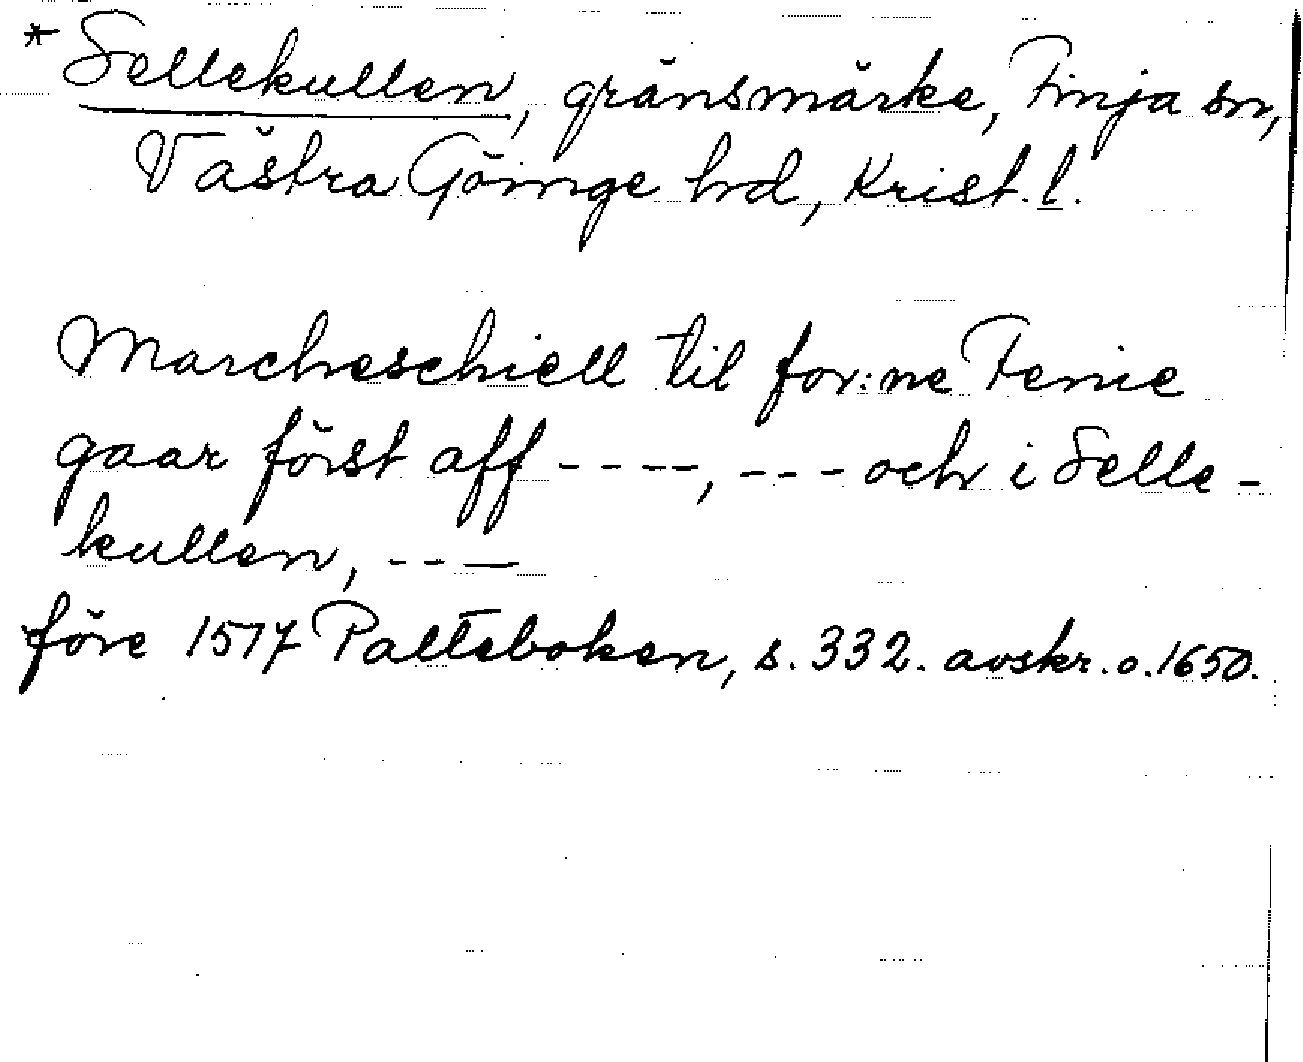 * Sellekullen, gränsmärke, Finja sn,
Västra Göinge hd, Krist. l.
Marcheschiell til for:ne Fenie
gaar först aff ----, --- och i Selle-
kullen, ---
före 1517 Palteboken, s. 332. avskr. o. 1650.